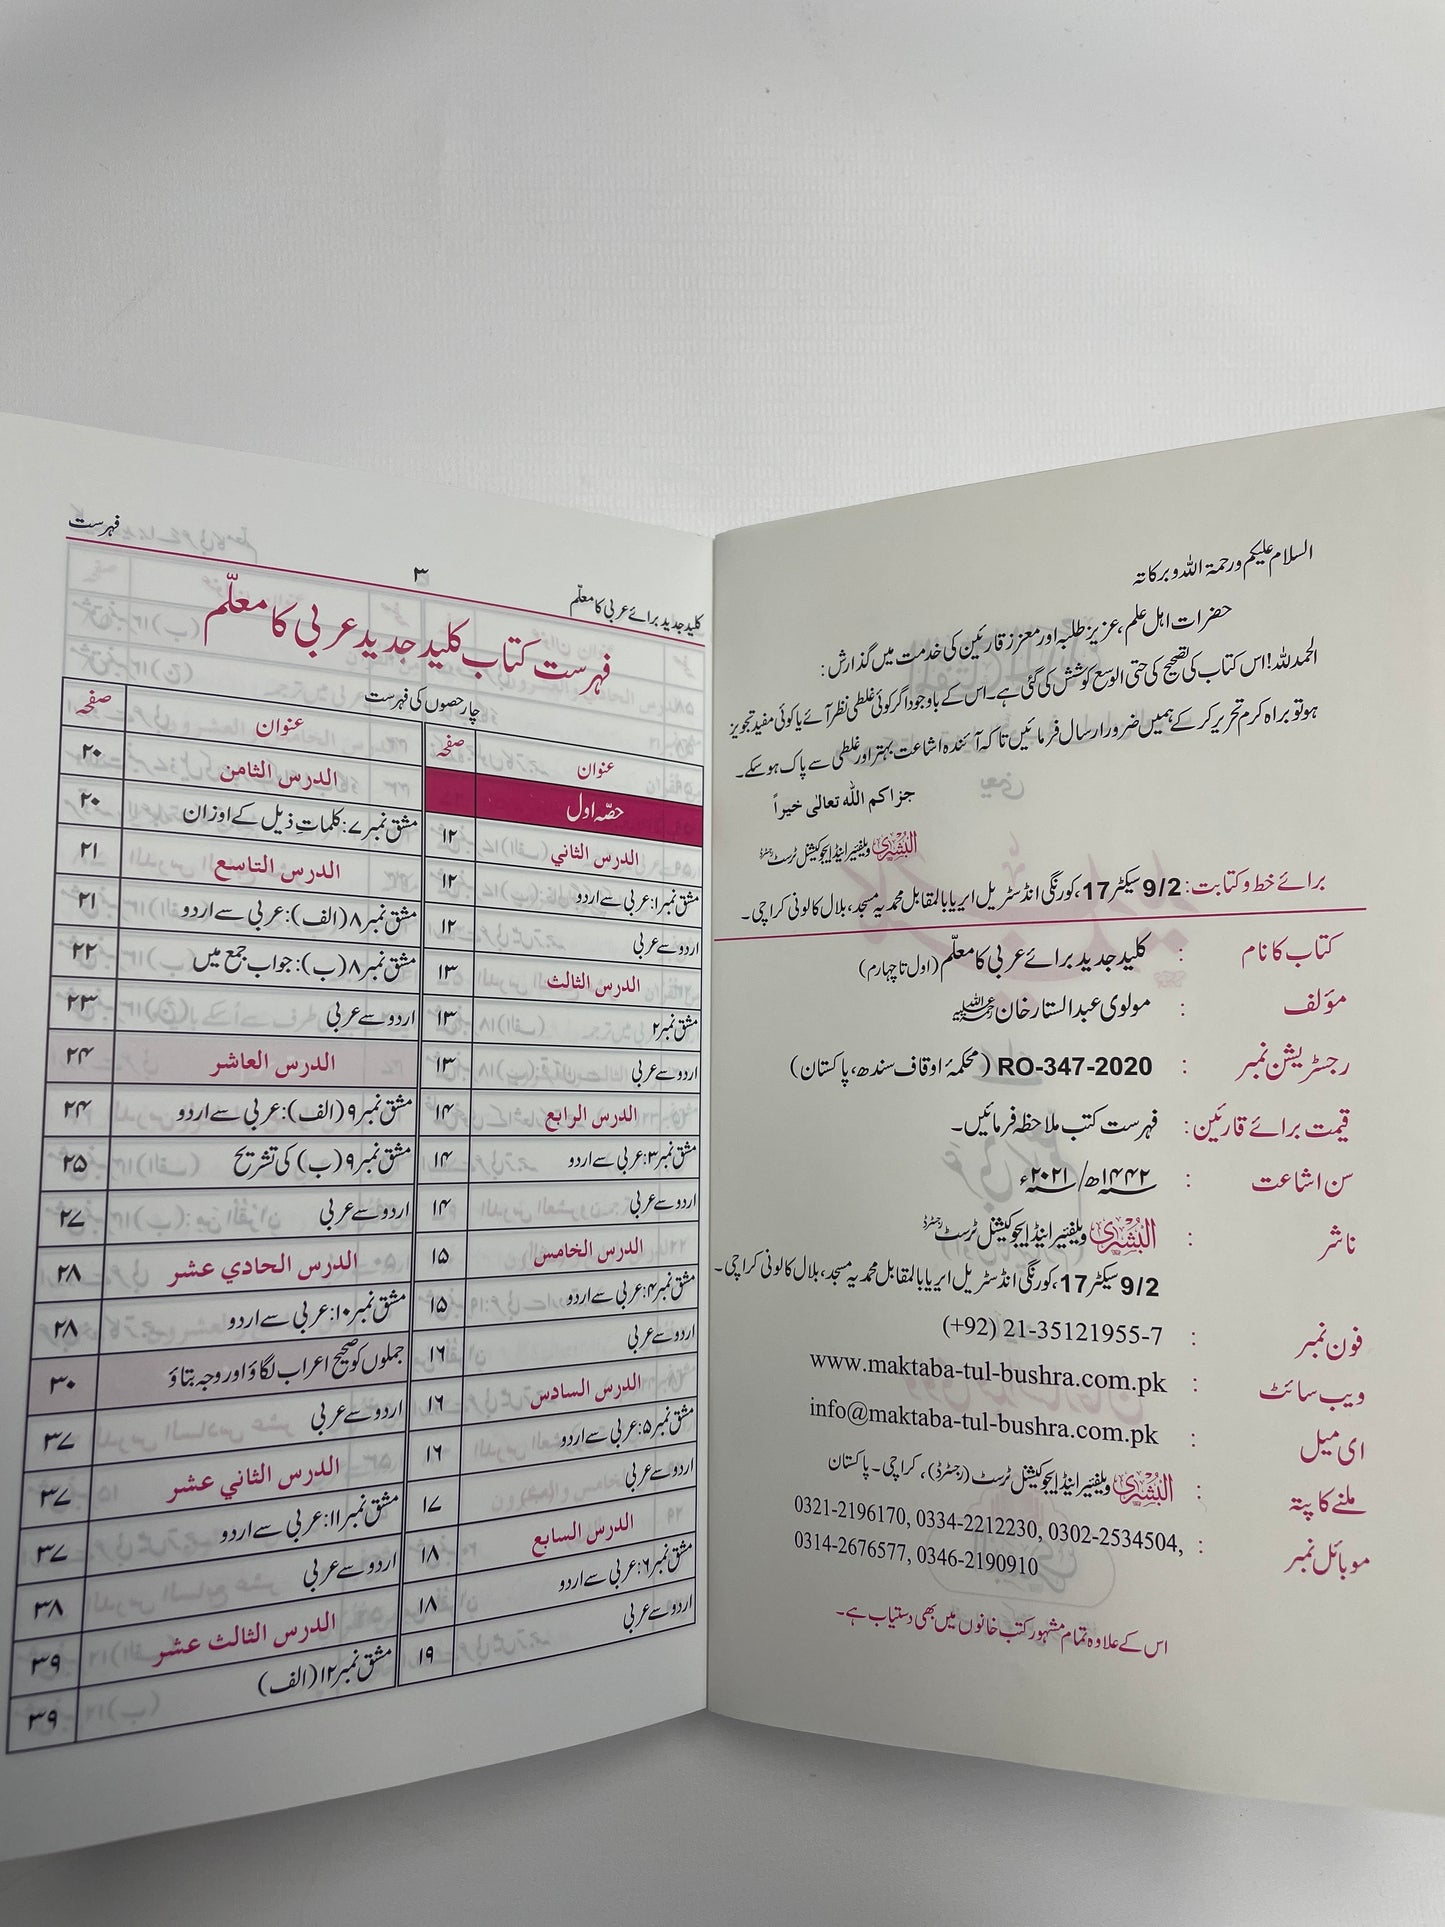 السلام علیکم ورحمۃ اللہ وبرکاتہ
حضرات اہل علم، عزیز طلبہ اور معزز قارئین کی خدمت میں گذارش:
الحمد للہ! اس کتاب کی تصحیح کی حتی الوسع کوشش کی گئی ہے۔ اس کے باوجود اگر کوئی غلطی نظر آئے یا کوئی مفید تجویز
ہو تو براہ کرم تحریر کر کے ہمیں ضرور ارسال فرمائیں تاکہ آئندہ اشاعت بہتر اور غلطی سے پاک ہو سکے۔
جزاکم اللہ تعالٰی خیراً
البُشریٰ ویلفیئر اینڈ ایجوکیشنل ٹرسٹ رجسٹرڈ
برائے خط و کتابت: 9/2 سیکٹر 17، کورنگی انڈسٹریل ایریا بالمقابل محمدیہ مسجد، بلال کالونی کراچی۔
کتاب کا نام : کلید جدید برائے عربی کا معلّم (اول تا چہارم)
مؤلف : مولوی عبدالستار خان رحمۃ اللہ علیہ
رجسٹریشن نمبر : RO-347-2020 (محکمۂ اوقاف سندھ، پاکستان)
قیمت برائے قارئین : فہرست کتب ملاحظہ فرمائیں۔
سن اشاعت : ۱۴۴۲ھ/ ۲۰۲۱ء
ناشر : البُشریٰ ویلفیئر اینڈ ایجوکیشنل ٹرسٹ رجسٹرڈ
9/2 سیکٹر 17، کورنگی انڈسٹریل ایریا بالمقابل محمدیہ مسجد، بلال کالونی کراچی۔
فون نمبر : (+92) 21-35121955-7
ویب سائٹ : www.maktaba-tul-bushra.com.pk
ای میل : info@maktaba-tul-bushra.com.pk
ملنے کا پتہ : البُشریٰ ویلفیئر اینڈ ایجوکیشنل ٹرسٹ (رجسٹرڈ)، کراچی۔ پاکستان
موبائل نمبر : 0321-2196170, 0334-2212230, 0302-2534504,
0314-2676577, 0346-2190910
اس کے علاوہ تمام مشہور کتب خانوں میں بھی دستیاب ہے۔
کلید جدید برائے عربی کا معلّم ۳ فہرست
فہرست کتاب کلید جدید عربی کا معلّم
چار حصوں کی فہرست
عنوان صفحہ
حصّہ اول
الدرس الثاني ۱۲
مشق نمبر۱: عربی سے اردو ۱۲
اردو سے عربی ۱۲
الدرس الثالث ۱۳
مشق نمبر۲ ۱۳
اردو سے عربی ۱۳
الدرس الرابع ۱۴
مشق نمبر۳: عربی سے اردو ۱۴
اردو سے عربی ۱۴
الدرس الخامس ۱۵
مشق نمبر۴: عربی سے اردو ۱۵
اردو سے عربی ۱۶
الدرس السادس ۱۶
مشق نمبر۵: عربی سے اردو ۱۶
اردو سے عربی ۱۷
الدرس السابع ۱۸
مشق نمبر۶: عربی سے اردو ۱۸
اردو سے عربی ۱۹
عنوان صفحہ
الدرس الثامن ۲۰
مشق نمبر ۷: کلماتِ ذیل کے اوزان ۲۰
الدرس التاسع ۲۱
مشق نمبر ۸ (الف): عربی سے اردو ۲۱
مشق نمبر ۸ (ب): جواب جمع میں ۲۲
اردو سے عربی ۲۳
الدرس العاشر ۲۴
مشق نمبر ۹ (الف): عربی سے اردو ۲۴
مشق نمبر ۹ (ب) کی تشریح ۲۵
اردو سے عربی ۲۷
الدرس الحادي عشر ۲۸
مشق نمبر ۱۰: عربی سے اردو ۲۸
جملوں کو صحیح اعراب لگاؤ اور وجہ بتاؤ ۳۰
اردو سے عربی ۳۷
الدرس الثاني عشر ۳۷
مشق نمبر ۱۱: عربی سے اردو ۳۷
اردو سے عربی ۳۸
الدرس الثالث عشر ۳۹
مشق نمبر ۱۲ (الف) ۳۹